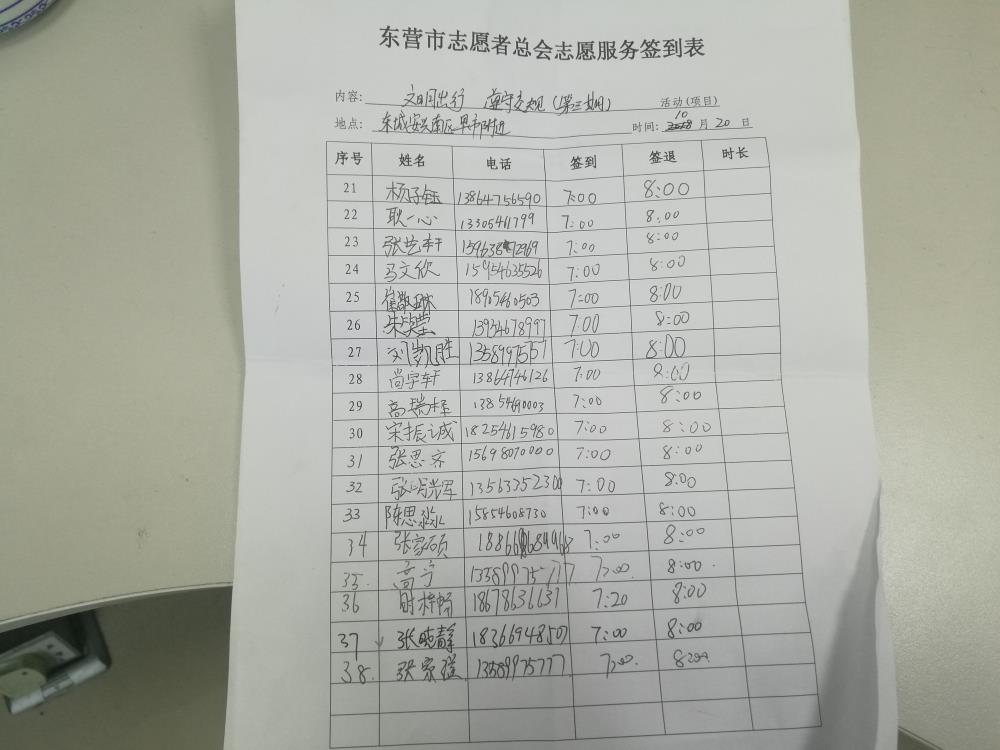 东营市志愿者总会志愿服务签到表
内容: 文明出行 遵守交规(第三期) 活动(项目)
地点: 东城安兴南区早市附近 时间: 10月20日
序号 姓名 电话 签到 签退 时长
21 杨子钰 13864756590 7:00 8:00
22 耿一心 13305461799 7:00 8:00
23 张艺轩 7:00 8:00
24 马文欣 15954635526 7:00 8:00
25 崔敬琳 18905460503 7:00 8:00
26 13934678997 7:00 8:00
27 刘凯胜 13589975757 7:00 8:00
28 尚宇轩 13864746126 7:00 8:00
29 高瑞 13854690003 7:00 8:00
30 宋振诚 18254615980 7:00 8:00
31 张思齐 15698070000 7:00 8:00
32 13563352300 7:00 8:00
33 陈思淼 15854608730 7:00 8:00
34 张家硕 7:00 8:00
35. 高宁 13389975777 7:00 8:00.
36 时梓畅 18678636631 7:20 8:00
37 张晓静 18366948507 7:00 8:00
38. 张家瑶 13589975777 7:00 8:00